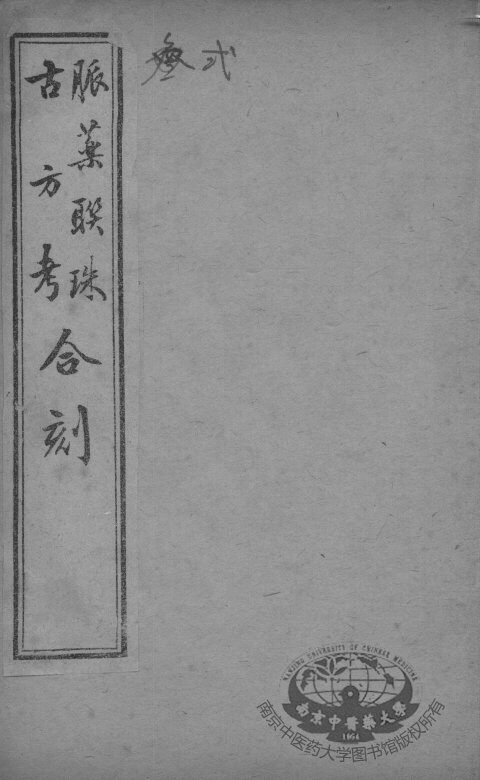 脈藥聯珠
古方考
合刻
式
NANJING UNIVERSITY OF CHINESE MEDICINE
南京中醫藥大學
1954
南京中医药大学图书馆版权所有